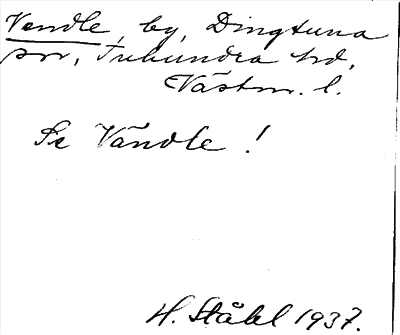 Vendle, by, Dingtuna
sn, Tuhundra hd,
Västm. l.
Se Vändle !
H. Ståhl 1937.